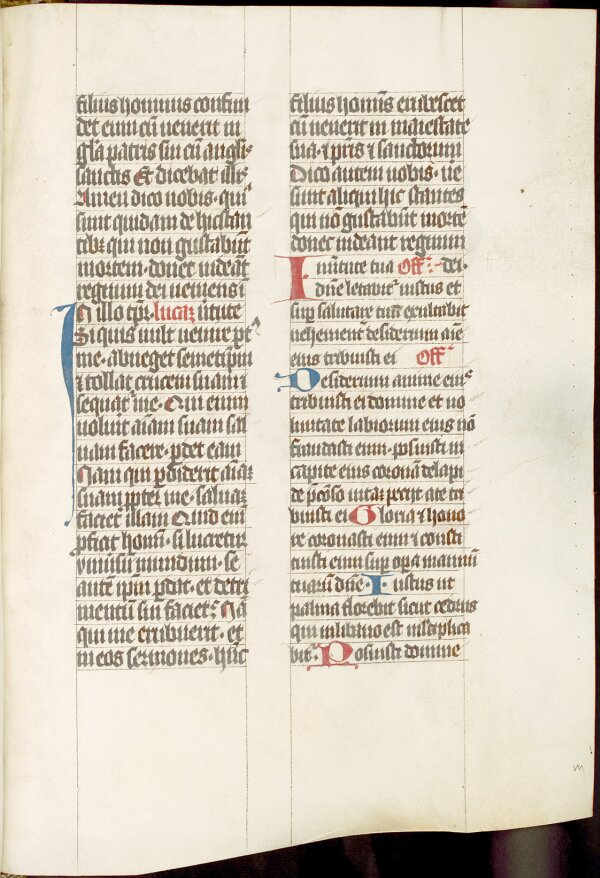 filius hominis confun
det eum cū venerit in
gl̄a patris sui cū angl̄is
sanctis Et dicebat illis
Amen dico vobis· qui
sunt quidam de hic stan
tibȝ qui non gustabūt
mortem· donec videāt
regnum dei veniens ī
In illo tp̄r· lucaȝ ūtute
Si quis vult venire pt
me· abneget semetip̄m
⁊ tollat crucem suam ⁊
sequat me· Qui enim
voluīt aīam suam sal
uam facere· ꝑdet eam
Nam qui ꝑdiderit aīaȝ
suam ꝓpter me· saluaȝ
faciet illam Quid eni
ꝓficit homī· si lucretur
vniūsū mundum· se
autē ip̄m ꝑdat· et detri
mentū sui faciet· Nā
qui me erubuerit· et
meos sermones· hūc
filius homīs erubescet
cū venerit in maiestate
sua· ⁊ pr̄is ⁊ sanctorum
Dico autem vobis· ve
sunt aliqui hic stantes
qui nō gustabūt mortē
donec videant regnum
In ūtute tua Off· dei·
dn̄e letabitʳ iustus et
suꝑ salutare tuū exultabit
vehement desiderium aīe
eius tribuisti ei Off
Desiderium anime eiꝰ
tribuisti ei domine et vo
luntate labiorum eius nō
fraudasti eum· posuisti in
capite eius coronā de lapi
de p̄cōso vitāȝ peciit a te tri
buisti ei Gloria ⁊ hono
re coronasti eum ⁊ consti
tuisti eum suꝑ oꝑa manuū
tuarū dn̄e· Iustus ut
palma florebit sicut cedrus
que in libano est multiplica
bitʳ· Posuisti domine